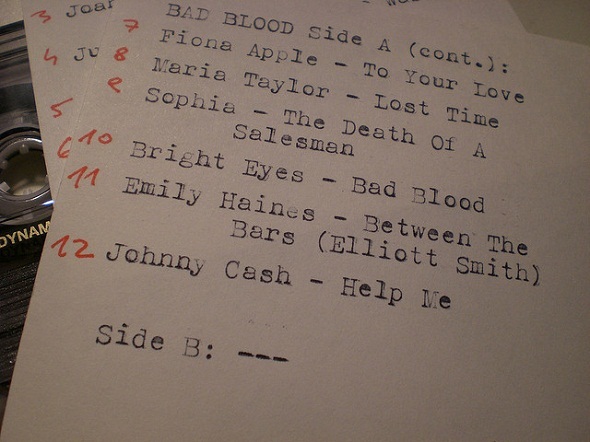 3 Joar
4 Ju
5
6
BAD BLOOD Side A (cont.):
7 Fiona Apple - To Your Love
8 Maria Taylor - Lost Time
9 Sophia - The Death Of A
Salesman
10 Bright Eyes - Bad Blood
11 Emily Haines - Between The
Bars (Elliott Smith)
12 Johnny Cash - Help Me
Side B: ---
DYNAM